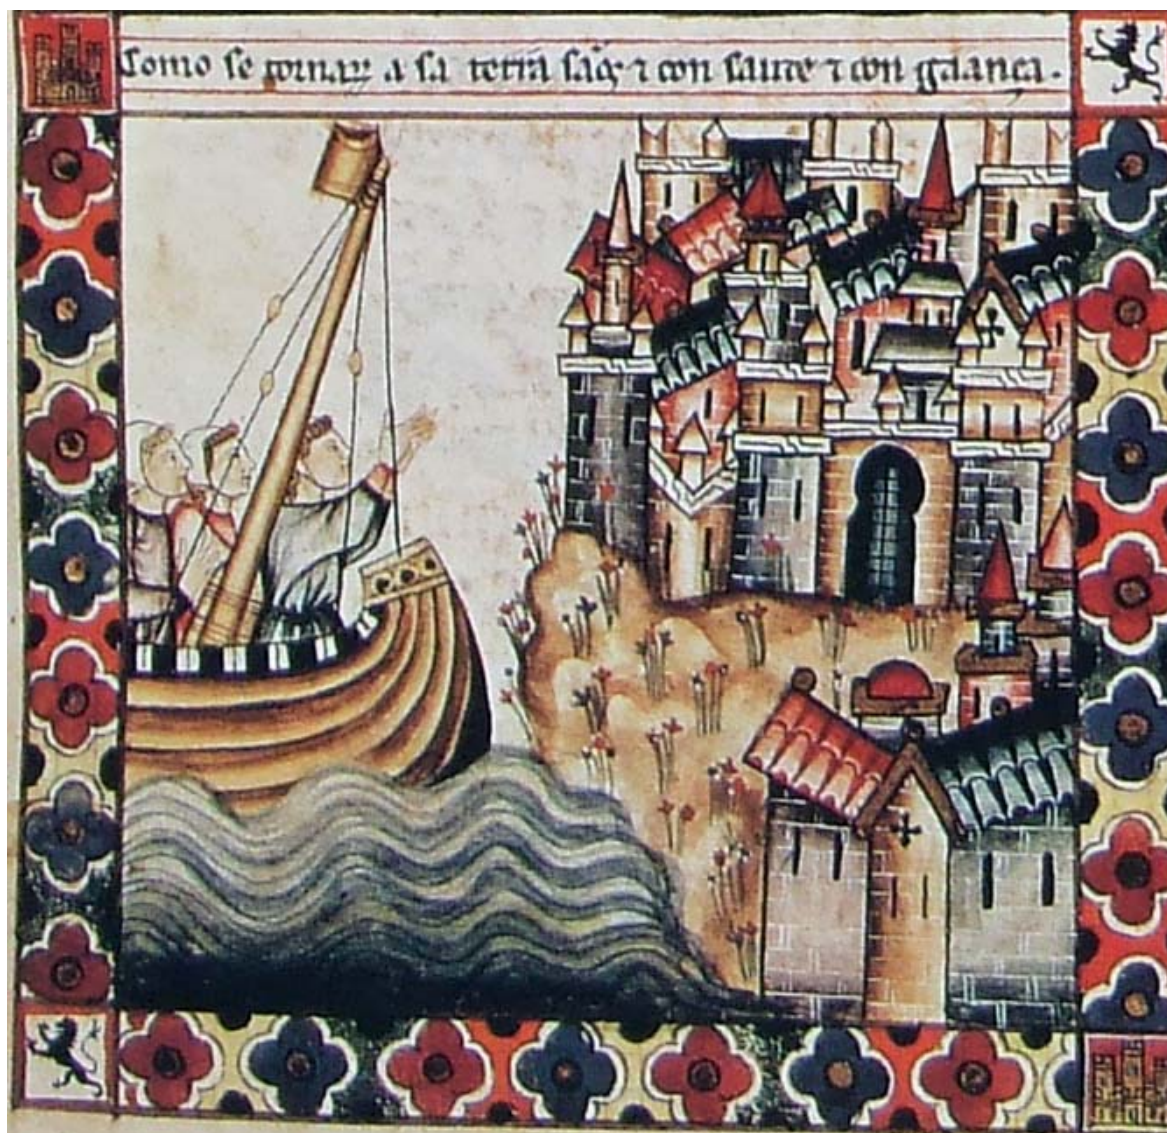 Como se tornarõ a sa terra ⁊ con saude ⁊ con gaança.